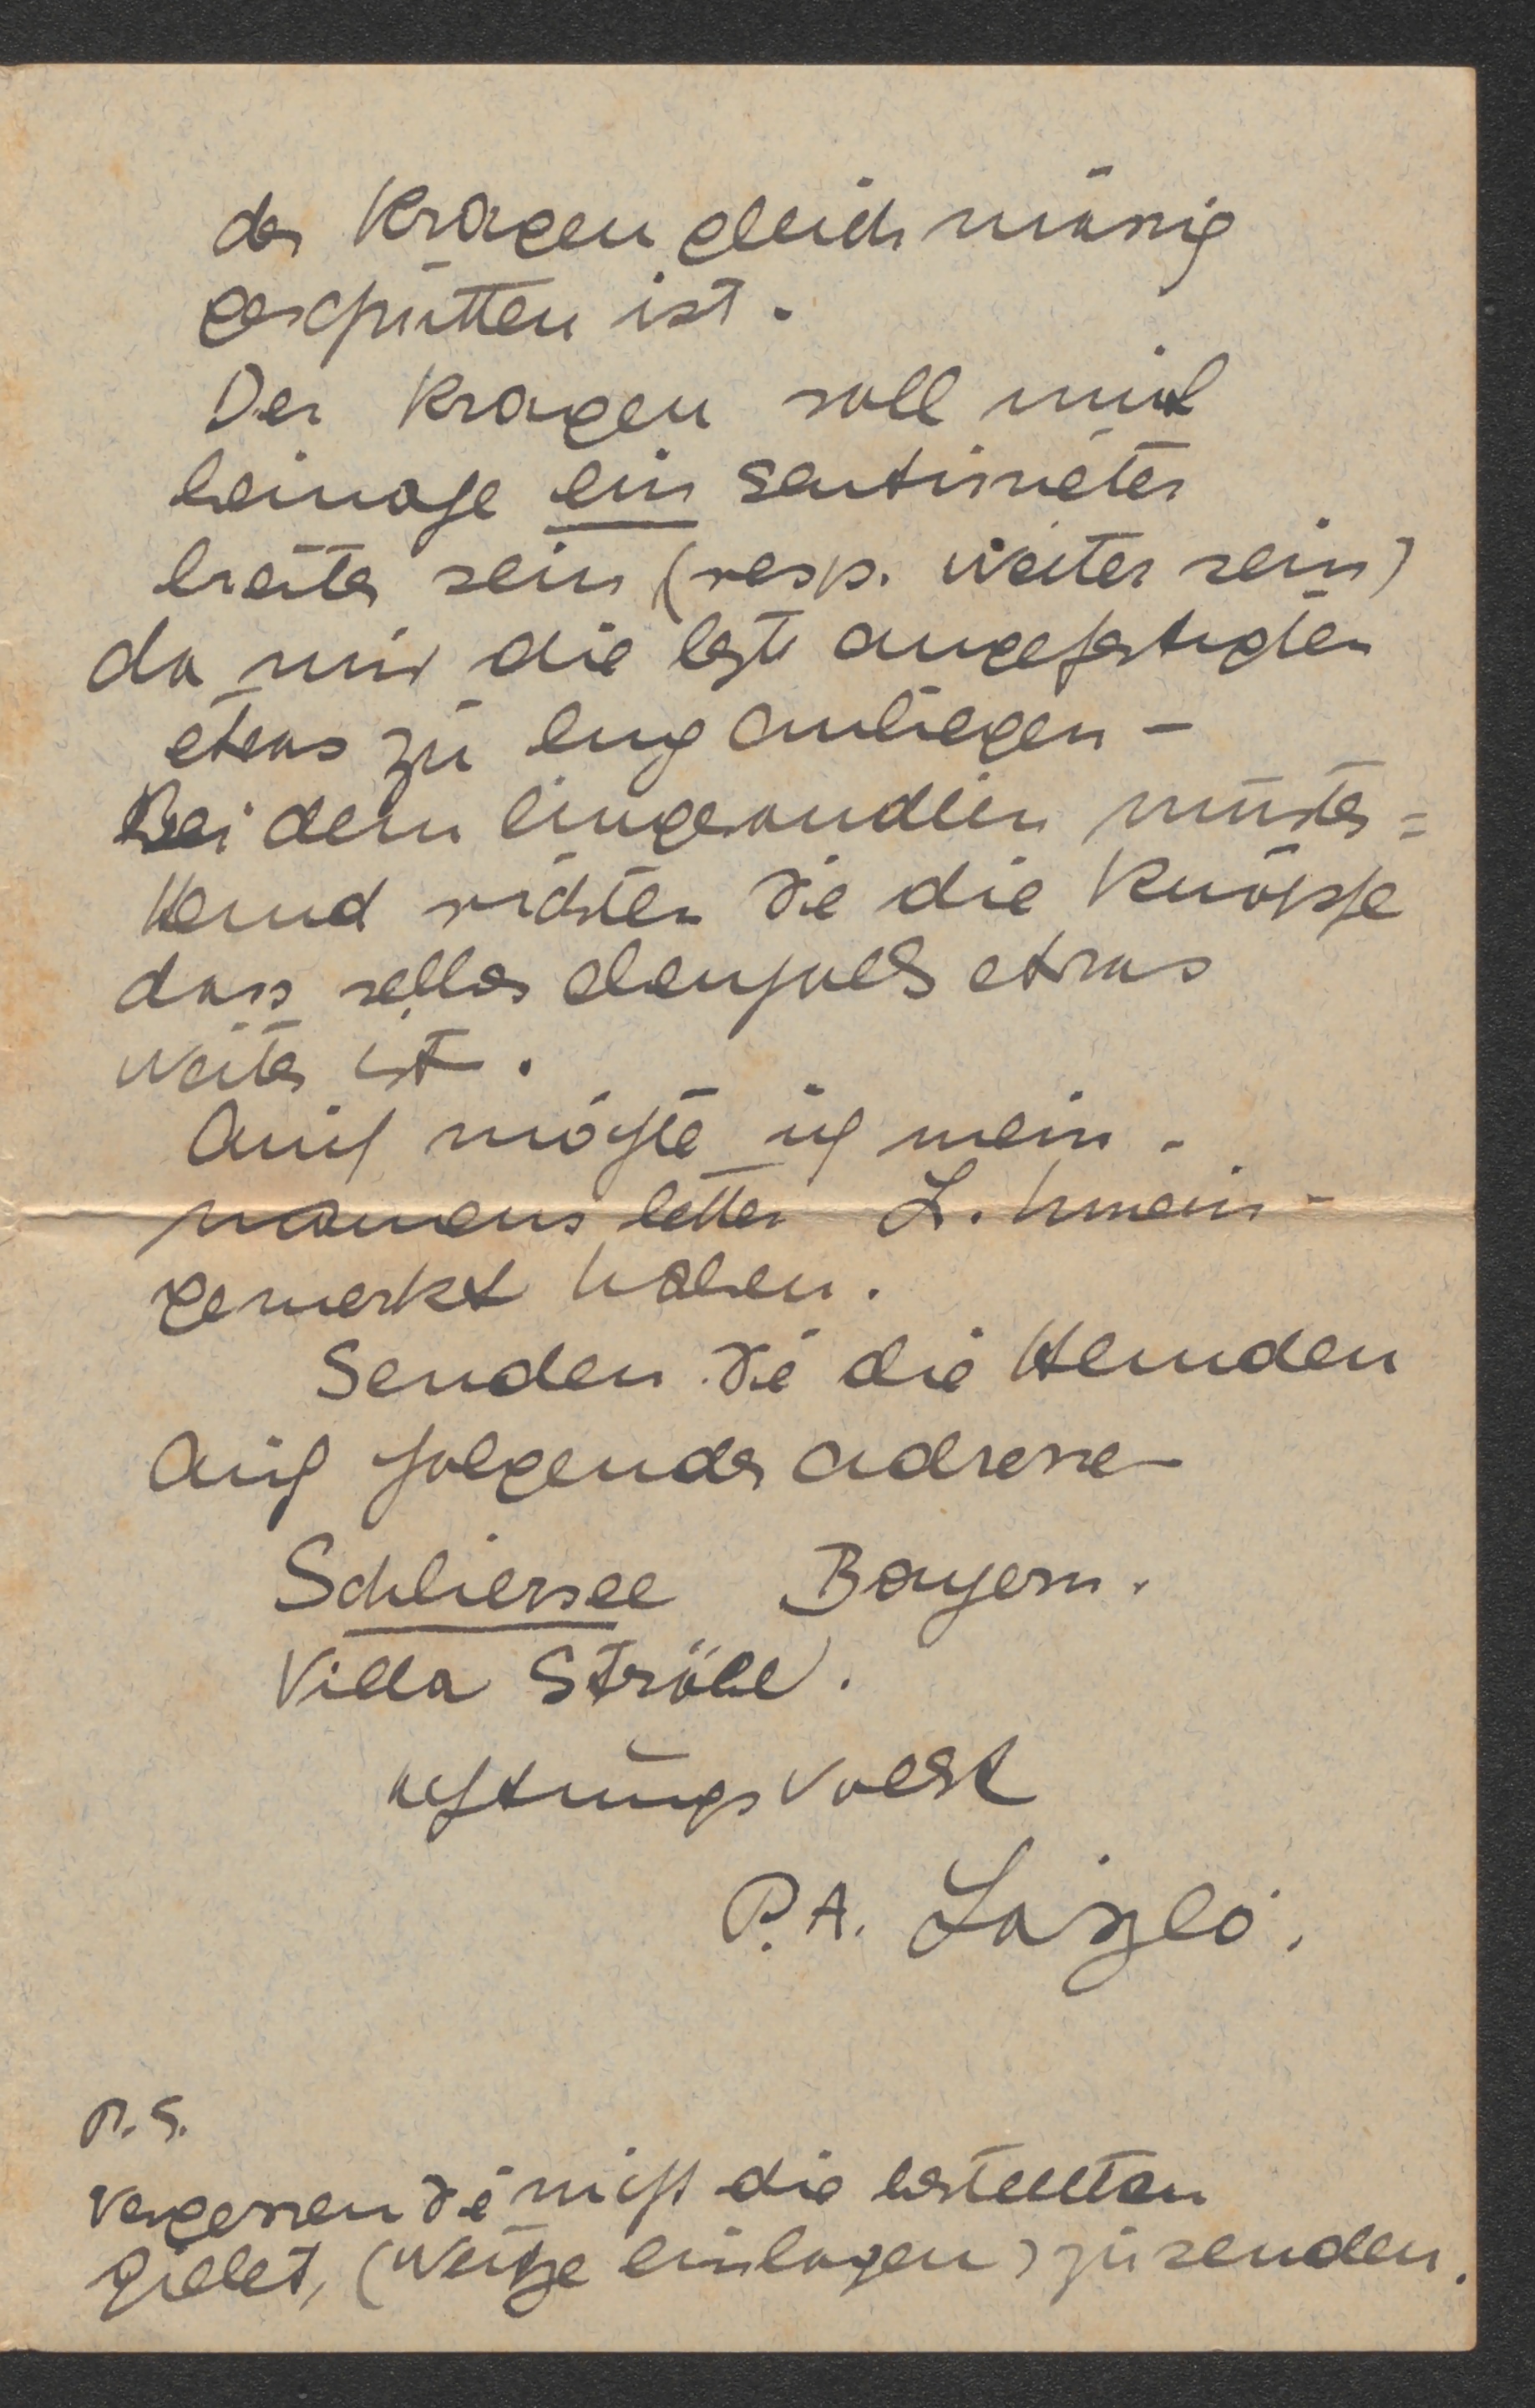 der Kragen gleich mässig
geschnitten ist.
Der Kragen soll um
beinahe ein Sentimeter
breiter sein (resp. weiter sein)
da mir die letzt angefertigten
etwas zu eng anliegen -
Bei dem eingesandten muster =
Hemd richten Sie die Knöpfe
dass selber ebenfalls etwas
weiter ist.
Auch möchte ich mein -
namens letter L.
gemerkt haben.
Senden Sie die Hemden
Auf folgender adresse
Schliersee Bayern.
Villa Ströbel.
achtungsvollst
P.A. László.
P.S.
vergessen Sie nicht die bestellten
Gielet, (Weitze einlagen) zu senden.